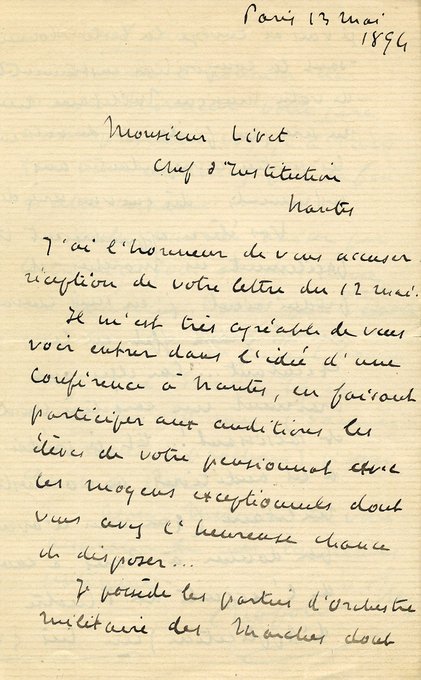 Paris 13 mai
1894
Monsieur Livet
Chef d'Institution
Nantes
J'ai l'honneur de vous accuser
réception de votre lettre du 12 mai.
Il m'est très agréable de vous
voir entrer dans l'idée d'une
conférence à Nantes, en faisant
participer aux auditions les
élèves de votre pensionnat avec
les moyens exceptionnels dont
vous avez l'heureuse chance
de disposer...
Je possède les parties d'orchestre
militaire des Marches dont